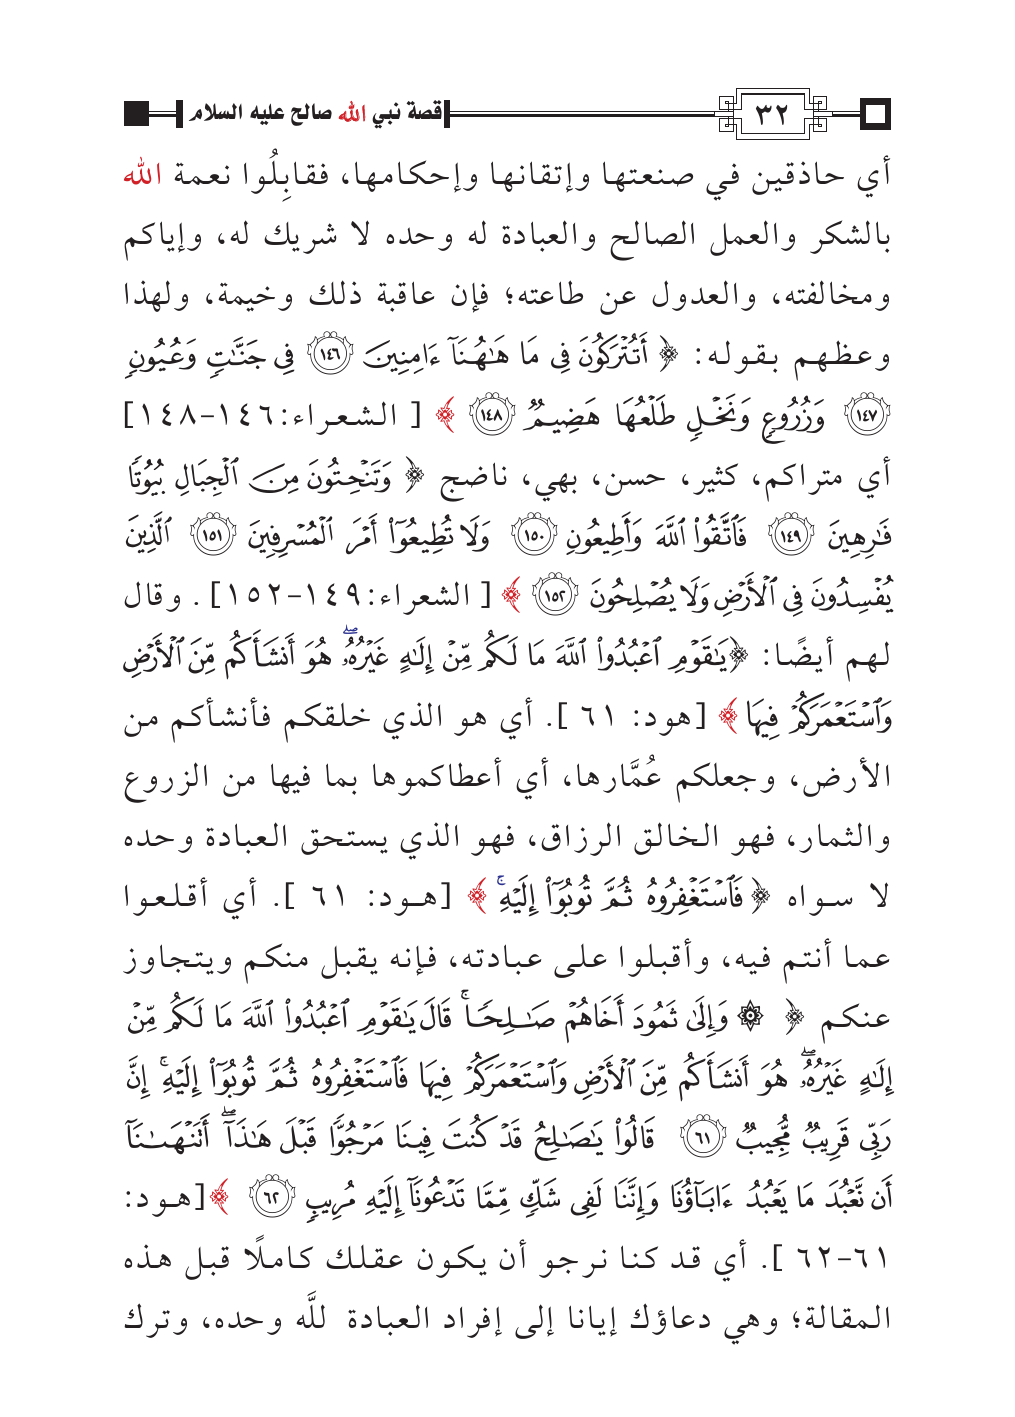 ٣٢ قصة نبي الله صالح عليه السلام
أي حاذقين في صنعتها وإتقانها وإحكامها، فقابِلُوا نعمة الله
بالشكر والعمل الصالح والعبادة له وحده لا شريك له، وإياكم
ومخالفته، والعدول عن طاعته؛ فإن عاقبة ذلك وخيمة، ولهذا
وعظهم بقوله: ﴿ أَتُتْرَكُونَ فِى مَا هَٰهُنَآ ءَامِنِينَ ١٤٦ فِى جَنَّٰتٍ وَعُيُونٍ
١٤٧ وَزُرُوعٍ وَنَخْلٍ طَلْعُهَا هَضِيمٌ ١٤٨ ﴾ [ الشعراء:١٤٦-١٤٨]
أي متراكم، كثير، حسن، بهي، ناضج ﴿ وَتَنْحِتُونَ مِنَ ٱلْجِبَالِ بُيُوتًا
فَٰرِهِينَ ١٤٩ فَٱتَّقُوا۟ ٱللَّهَ وَأَطِيعُونِ ١٥٠ وَلَا تُطِيعُوٓا۟ أَمْرَ ٱلْمُسْرِفِينَ ١٥١ ٱلَّذِينَ
يُفْسِدُونَ فِى ٱلْأَرْضِ وَلَا يُصْلِحُونَ ١٥٢ ﴾ [ الشعراء:١٤٩-١٥٢] . وقال
لهم أيضًا: ﴿يَٰقَوْمِ ٱعْبُدُوا۟ ٱللَّهَ مَا لَكُم مِّنْ إِلَٰهٍ غَيْرُهُۥ ۖ هُوَ أَنشَأَكُم مِّنَ ٱلْأَرْضِ
وَٱسْتَعْمَرَكُمْ فِيهَا ﴾ [هود: ٦١ ]. أي هو الذي خلقكم فأنشأكم من
الأرض، وجعلكم عُمَّارها، أي أعطاكموها بما فيها من الزروع
والثمار، فهو الخالق الرزاق، فهو الذي يستحق العبادة وحده
لا سواه ﴿ فَٱسْتَغْفِرُوهُ ثُمَّ تُوبُوٓا۟ إِلَيْهِ ۚ ﴾ [هود: ٦١ ]. أي أقلعوا
عما أنتم فيه، وأقبلوا على عبادته، فإنه يقبل منكم ويتجاوز
عنكم ﴿ ۞ وَإِلَىٰ ثَمُودَ أَخَاهُمْ صَٰلِحًا ۚ قَالَ يَٰقَوْمِ ٱعْبُدُوا۟ ٱللَّهَ مَا لَكُم مِّنْ
إِلَٰهٍ غَيْرُهُۥ ۖ هُوَ أَنشَأَكُم مِّنَ ٱلْأَرْضِ وَٱسْتَعْمَرَكُمْ فِيهَا فَٱسْتَغْفِرُوهُ ثُمَّ تُوبُوٓا۟ إِلَيْهِ ۚ إِنَّ
رَبِّى قَرِيبٌ مُّجِيبٌ ٦١ قَالُوا۟ يَٰصَٰلِحُ قَدْ كُنتَ فِينَا مَرْجُوًّا قَبْلَ هَٰذَآ ۖ أَتَنْهَىٰنَآ
أَن نَّعْبُدَ مَا يَعْبُدُ ءَابَآؤُنَا وَإِنَّنَا لَفِى شَكٍّ مِّمَّا تَدْعُونَآ إِلَيْهِ مُرِيبٍ ٦٢ ﴾[هود:
٦١-٦٢ ]. أي قد كنا نرجو أن يكون عقلك كاملًا قبل هذه
المقالة؛ وهي دعاؤك إيانا إلى إفراد العبادة للَّه وحده، وترك